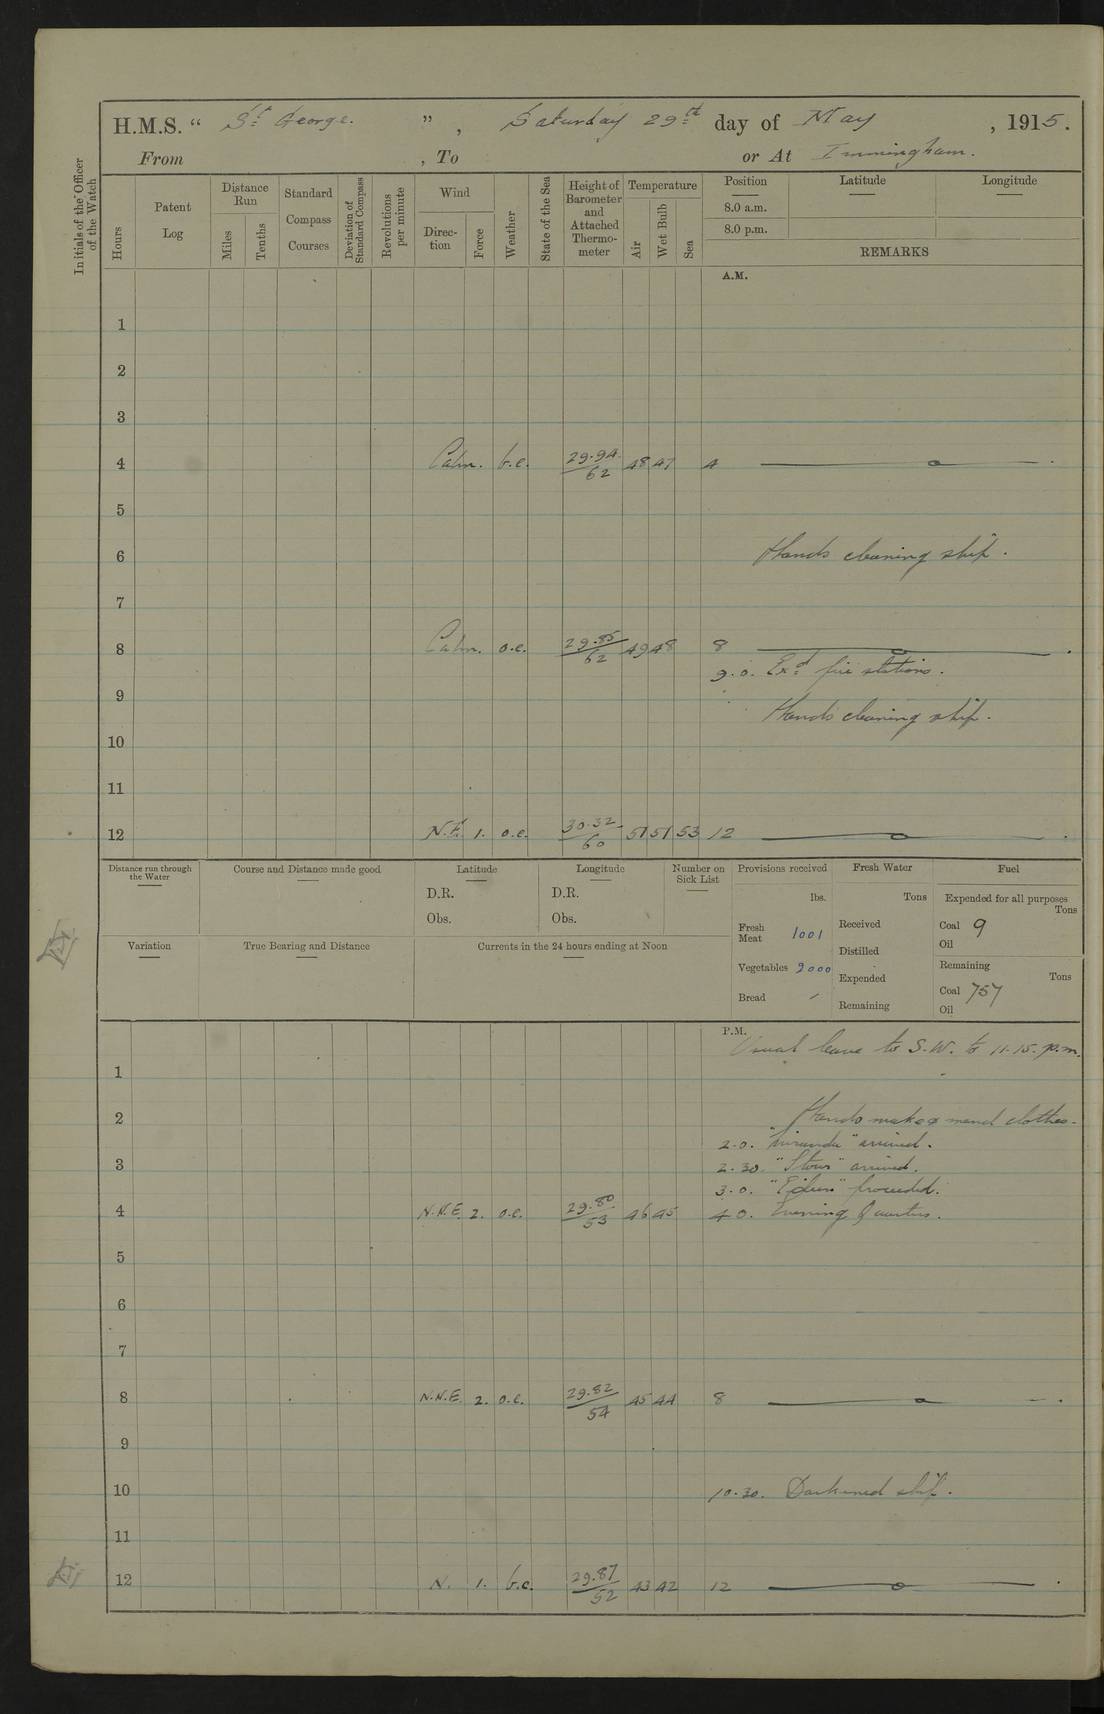 H.M.S. “ St George. ”, Saturday 29th day of May, 1915.
From , To or At Immingham.
Initials of the Officer of the Watch
Hours
Patent Log
Distance Run
Miles
Tenths
Standard Compass Courses
Deviation of Standard Compass
Revolutions per minute
Wind
Direction
Force
Weather
State of the Sea
Height of Barometer and Attached Thermometer
Temperature
Air
Wet Bulb
Sea
Position Latitude Longitude
8.0 a.m.
8.0 p.m.
REMARKS
A.M.
1
2
3
4 Calm. b.c. 29.94 / 62 48 47 4
5
6 Hands cleaning ship.
7
8 Calm. o.c. 29.85 / 62 49 48 8
9.0. Exd fire stations.
9
Hands cleaning ship.
10
11
12 N.E. 1. o.c. 30.32 / 60 51 51 53 12
Distance run through the Water
Course and Distance made good
Latitude
D.R.
Obs.
Longitude
D.R.
Obs.
Number on Sick List
Provisions received
lbs.
Fresh Meat 1001
Vegetables 9000
Bread
Fresh Water
Tons
Received
Distilled
Expended
Remaining
Fuel
Expended for all purposes
Tons
Coal 9
Oil
Remaining
Tons
Coal 757
Oil
Variation
True Bearing and Distance
Currents in the 24 hours ending at Noon
P.M.
Usual leave to S.W. to 11.15. p.m.
1
2 Hands make & mend clothes.
2.0. "Miranda" arrived.
3 2.30. "Stour" arrived.
3.0. "Eden" proceeded.
4 N.N.E. 2. o.c. 29.80 / 53 46 45 4.0. Evening Quarters.
5
6
7
8 N.N.E. 2. o.c. 29.82 / 54 45 44 8
9
10 10.30. Darkened ship.
11
12 N. 1. b.c. 29.87 / 52 43 42 12